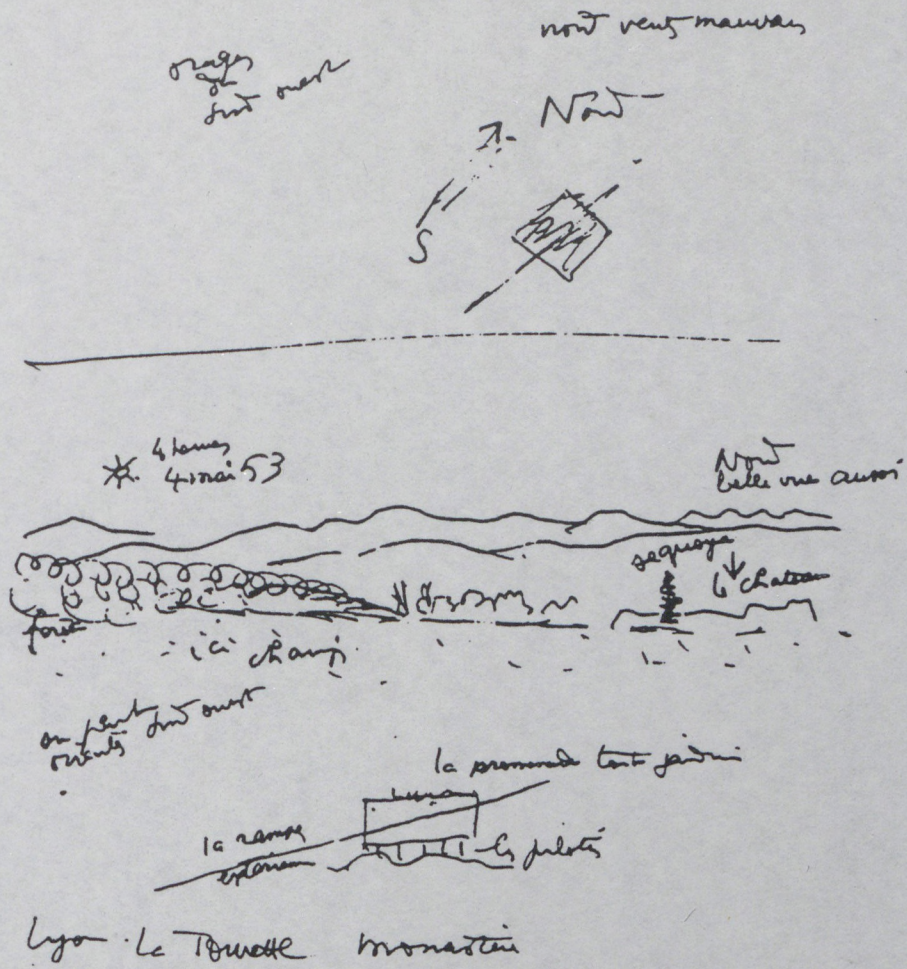 nord vent mauvais
orages
du
sud ouest
Nord
S
4 heures
4 mai 53
Nord
belle vue aussi
sequoya
le chateau
foret
ici champ
on peut
orienter sud ouest
la promenade toit jardin
la rampe
exterieure
les pilotis
Lyon La Tourette monastère